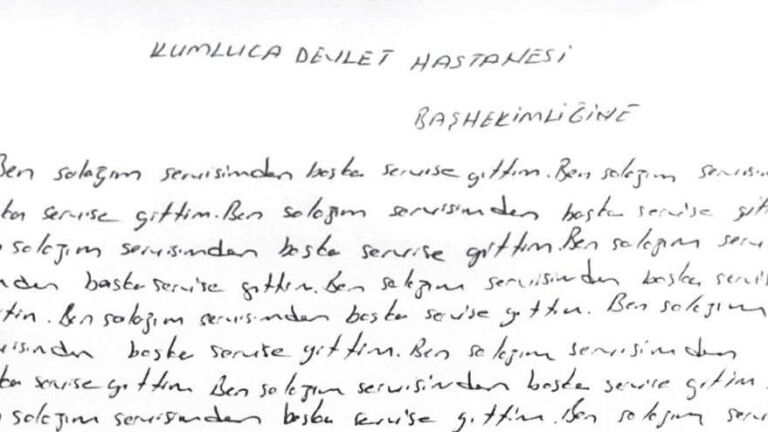 KUMLUCA DEVLET HASTANESİ
BAŞHEKİMLİĞİNE
Ben salağım servisimden başka servise gittim. Ben salağım
servise gittim. Ben salağım servisimden başka servise
salağım servisimden başka servise gittim. Ben salağım
başka servise gittim. Ben salağım servisimden başka
Ben salağım servisimden başka servise gittim. Ben salağım
başka servise gittim. Ben salağım servisimden
servise gittim Ben salağım servisimden başka servise gittim.
salağım servisimden başka servise gittim. Ben salağım